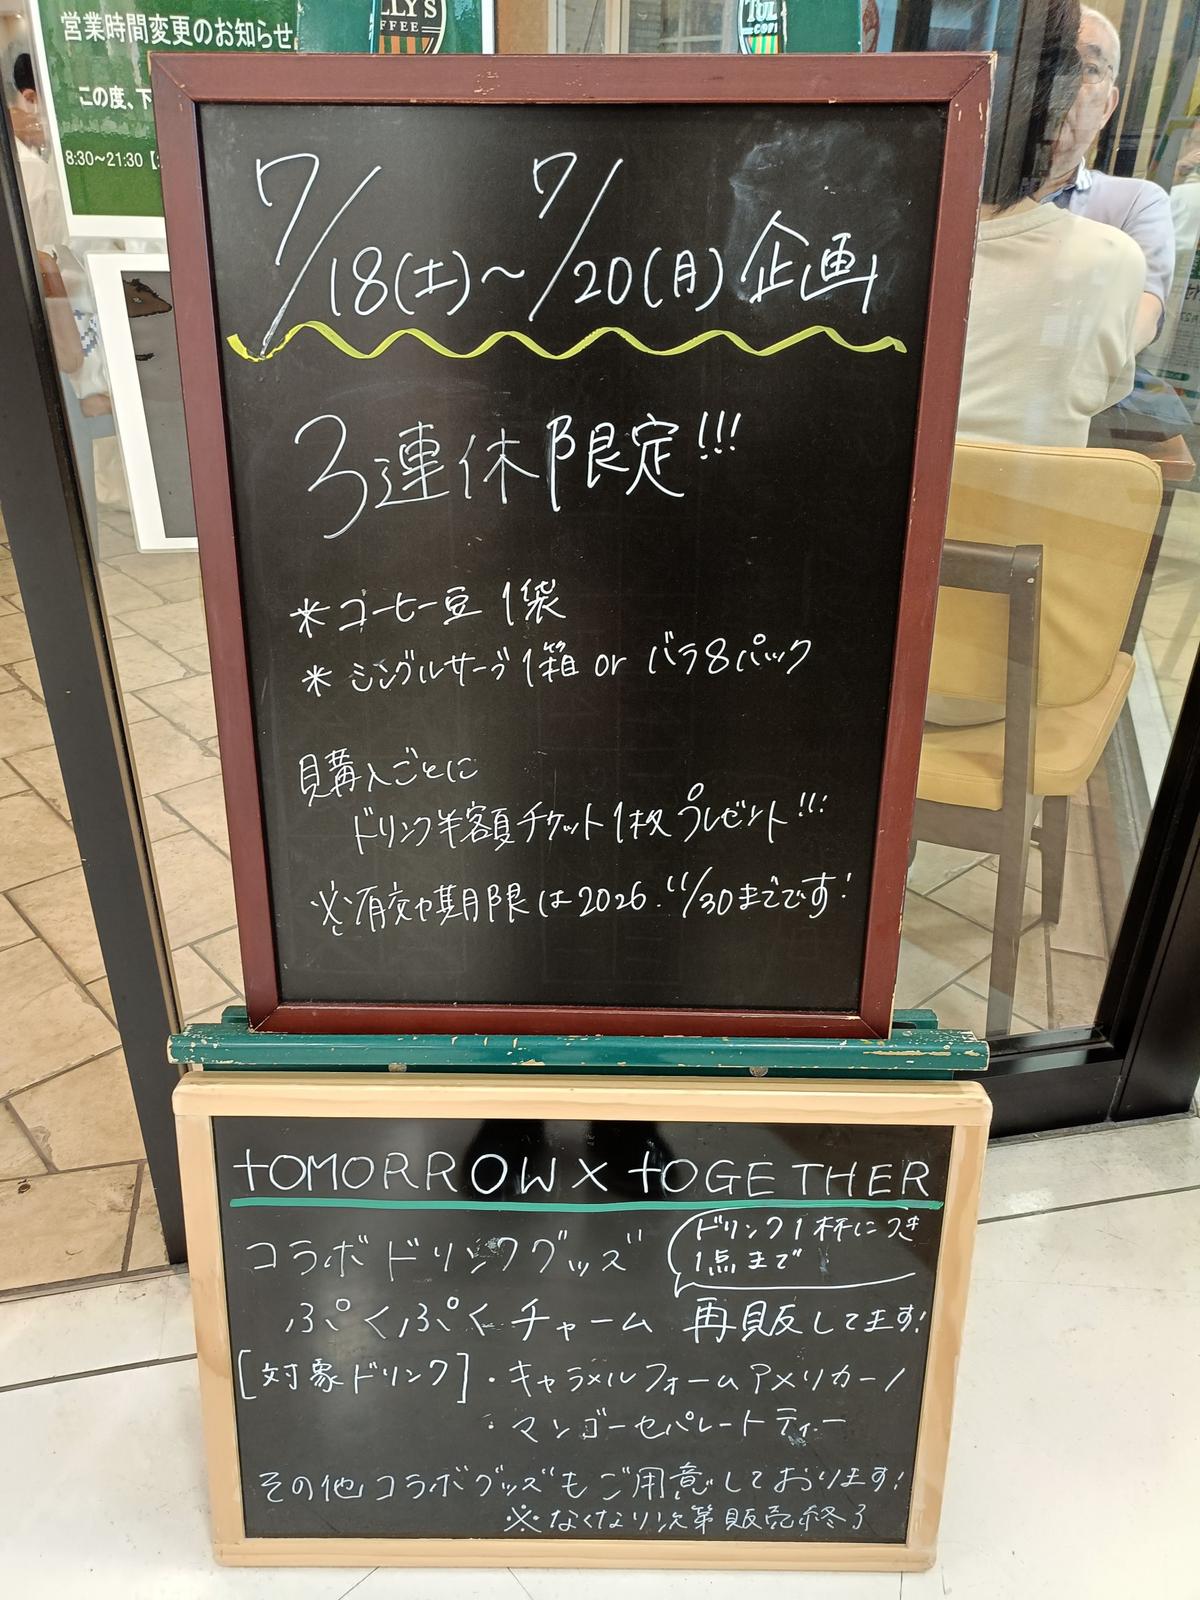 営業時間変更のお知らせ
この度、下
8:30~21:30
LLY'S
FFEE
TUL
COF
7/18(土)~7/20(月)企画
3連休限定!!!
*コーヒー豆 1袋
*シングルサーブ1箱 or バラ8パック
購入ごとに
ドリンク半額チケット1枚プレゼント!!!
※有効期限は2026.11/30までです!
TOMORROW X TOGETHER
コラボドリンクグッズ
ドリンク1杯につき
1点まで
ぷくぷくチャーム 再販してます!
[対象ドリンク]・キャラメルフォームアメリカーノ
・マンゴーセパレートティー
その他コラボグッズもご用意しております!
※なくなり次第販売終了